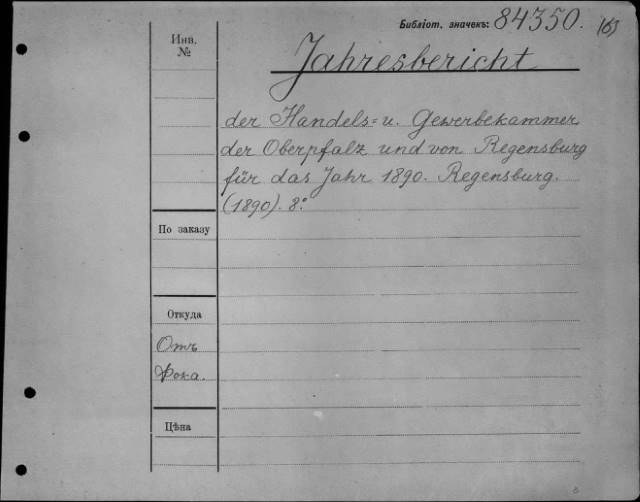 Библіот. значекъ: 84350. (6)
Инв.
№
Jahresbericht
der Handels= u. Gewerbekammer
der Oberpfalz und von Regensburg
für das Jahr 1890. Regensburg.
(1890). 8º.
По заказу
Откуда
Отъ
Фока.
Цѣна